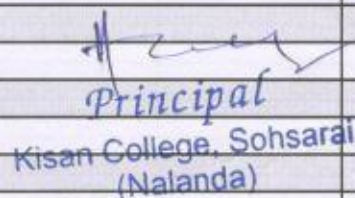 Principal
Kisan College, Sohsarai
(Nalanda)